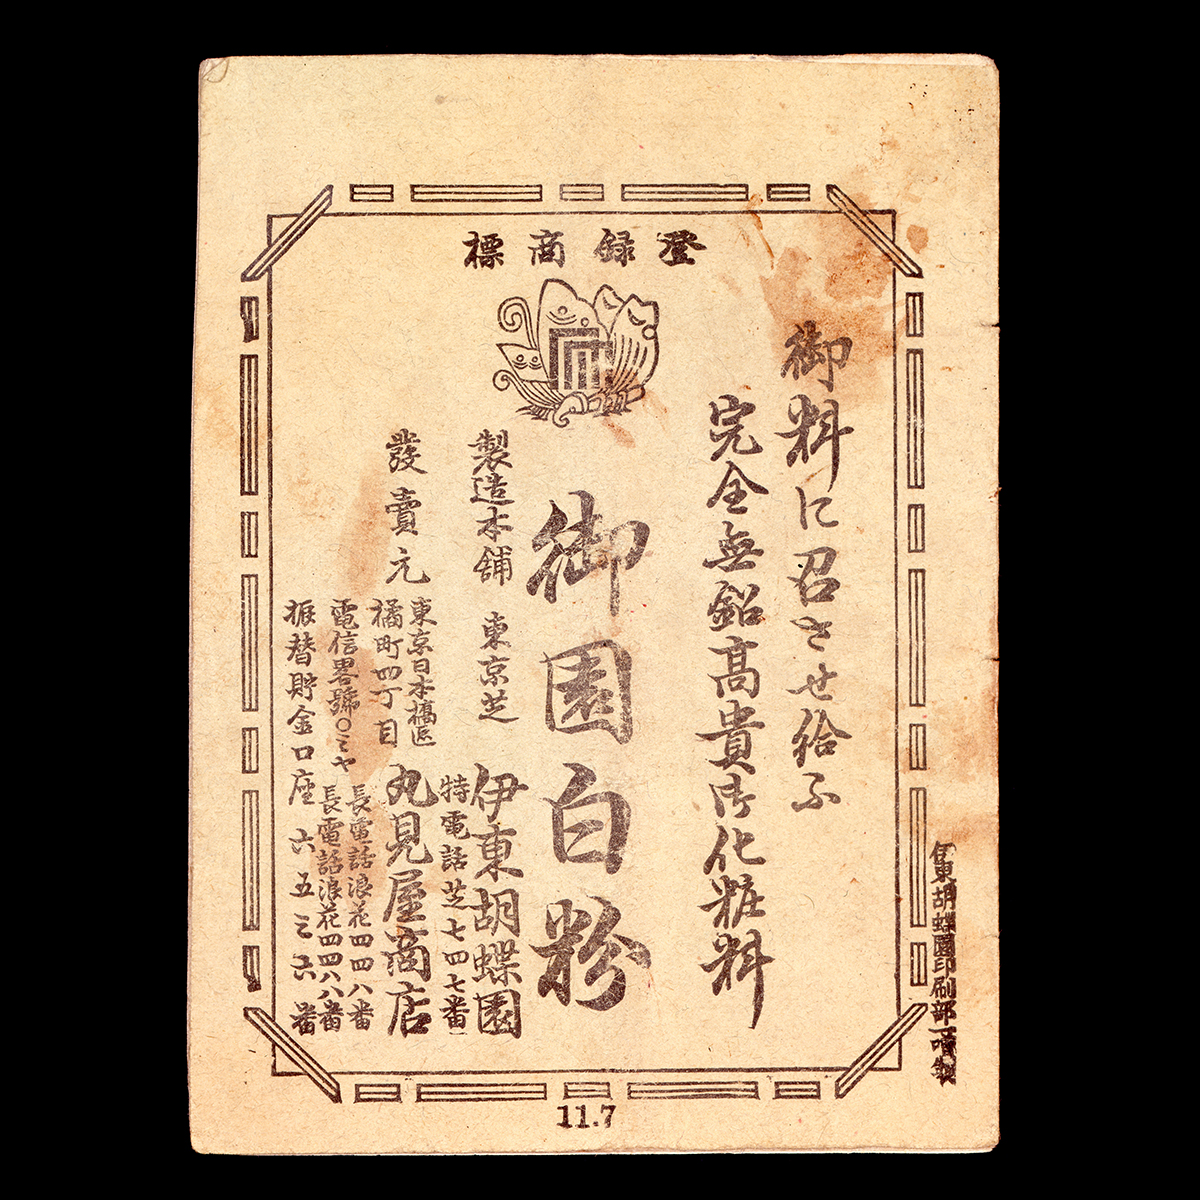 登録商標
御料に召させ給ふ
完全無鉛高貴御化粧料
御園白粉
製造本舗 東京芝 伊東胡蝶園
特電話芝七四七番
發賣元 東京日本橋区
橘町四丁目 丸見屋商店
長電話浪花四四八番
電信畧號〇ミヤ 長電話浪花四四八八番
振替貯金口座 六五三六番
伊東胡蝶園印刷部
11.7